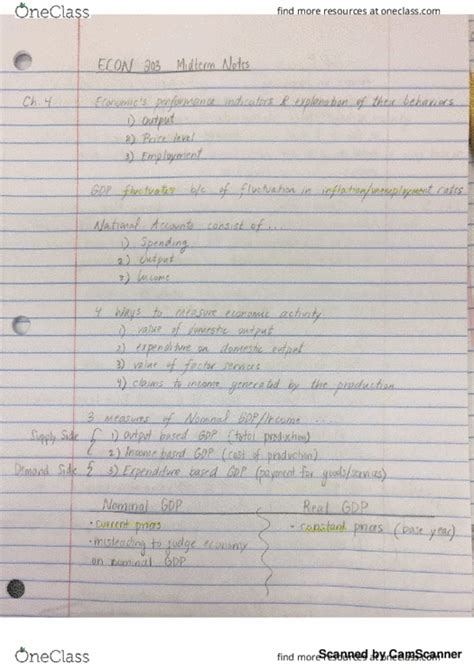 OneClass
find more resources at oneclass.com
ECON 203 Midterm Notes
Ch. 4 Economic's performance indicators & explanation of their behaviors
1) Output
2) Price level
3) Employment
GDP fluctuates b/c of fluctuation in inflation/unemployment rates
National Accounts consist of...
1) Spending
2) Output
3) Income
4 Ways to measure economic activity
1) value of domestic output
2) expenditure on domestic output
3) value of factor services
4) claims to income generated by the production
3 measures of Nominal GDP/Income ....
Supply Side { 1) Output based GDP (total production)
2) Income based GDP (cost of production)
Demand Side { 3) Expenditure based GDP (payment for goods/services)
Nominal GDP
Real GDP
• current prices
• constant prices (base year)
• misleading to judge economy
on nominal GDP
OneClass
find more resources at oneclass.com
Scanned by CamScanner